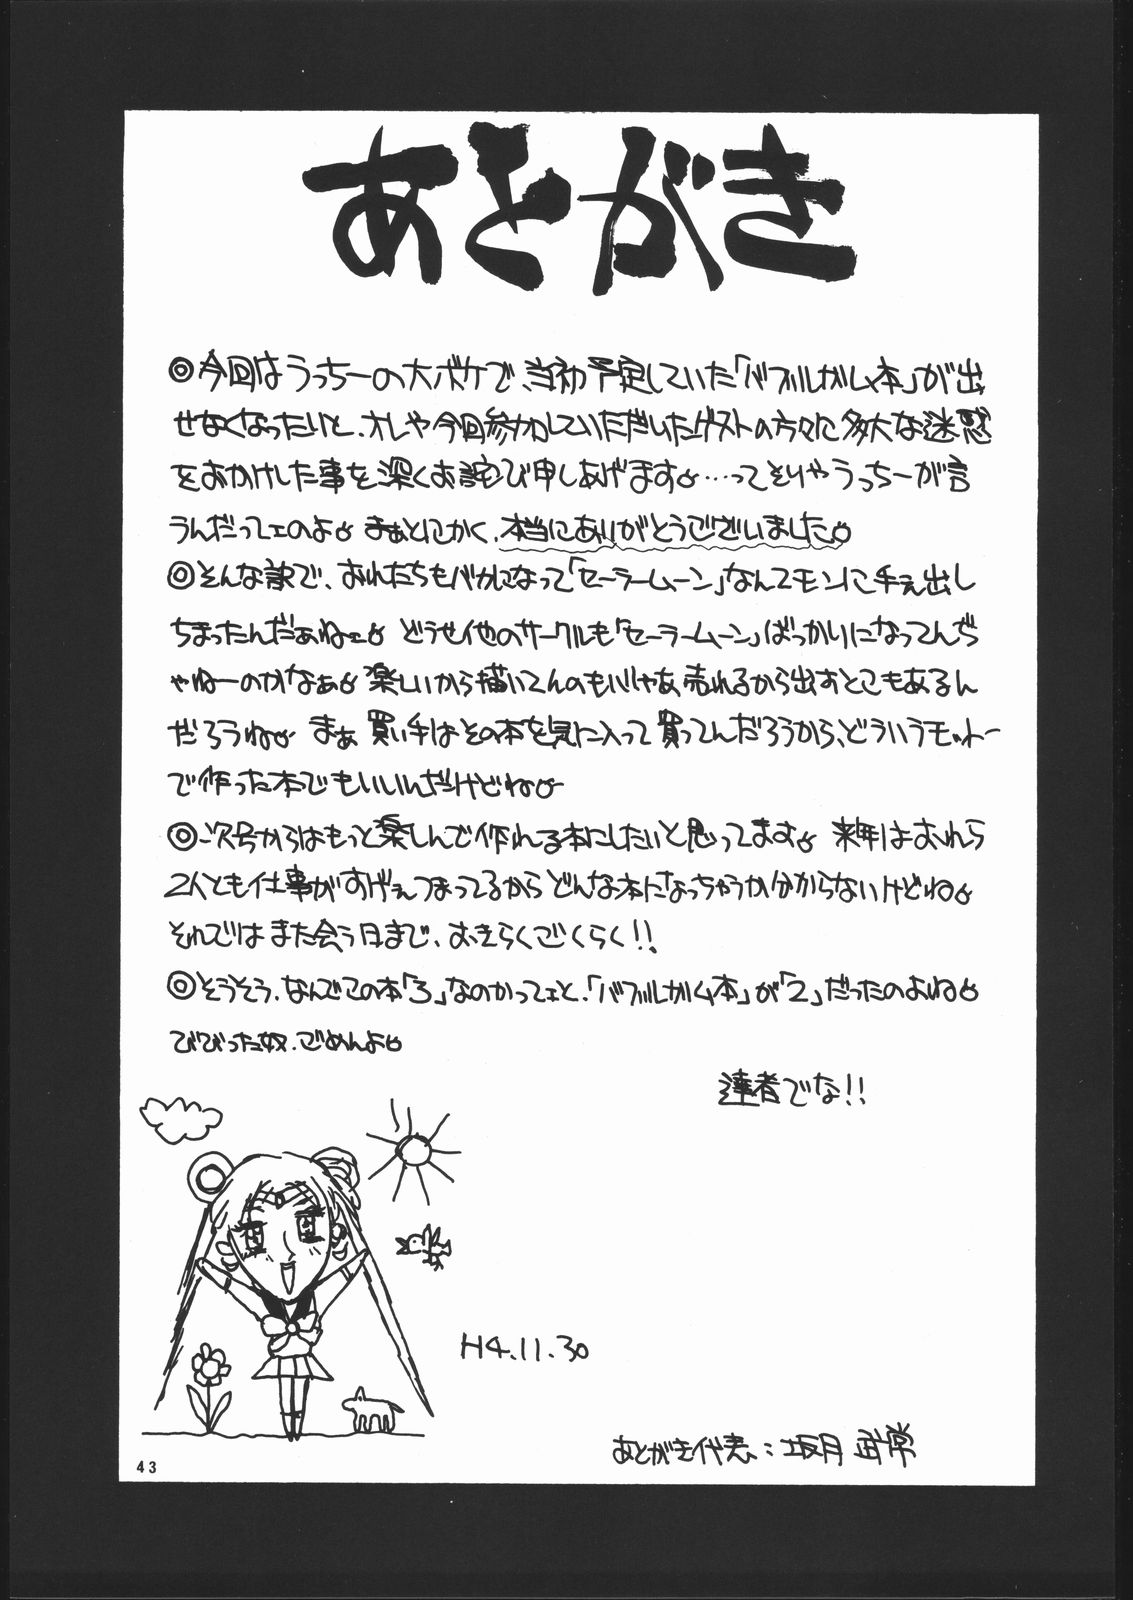 あとがき
◎今回はうっちーの大ボケで、当初予定していた「バブルガム本」が出
せなくなったいと、オレや今回参加していただいたゲストの方々に多大な迷惑
をおかけした事を深くお詫び申しあげます。…ってそりゃうっちーが言
うんだってェのよ。まぁとにかく、本当にありがとうございました。
◎そんな訳で、おれたちもバカになって「セーラームーン」なんてモンに手ェ出し
ちまったんだぁねェ。どうせ他のサークルも「セーラームーン」ばっかりになってんぢ
ゃねーのかなぁ。楽しいから描いてんのもいりゃあ売れるから出すとこもあるん
だろうね。まぁ買い手はその本を気に入って買ってんだろうから、どういう
で作った本でもいいんだけどね。
◎次号からはもっと楽しんで作れる本にしたいと思ってます。来年はおれら
2人とも仕事がすげぇつまってるからどんな本になっちゃうか分からないけどね。
それではまた会う日まで、おきらくごくらく!!
◎そうそう、なんでこの本「3」なのかってェと、「バブルガム本」が「2」だったのよね。
びびった奴、ごめんよ。
達者でな!!
H4.11.30
あとがき代表:坂月 武常
43